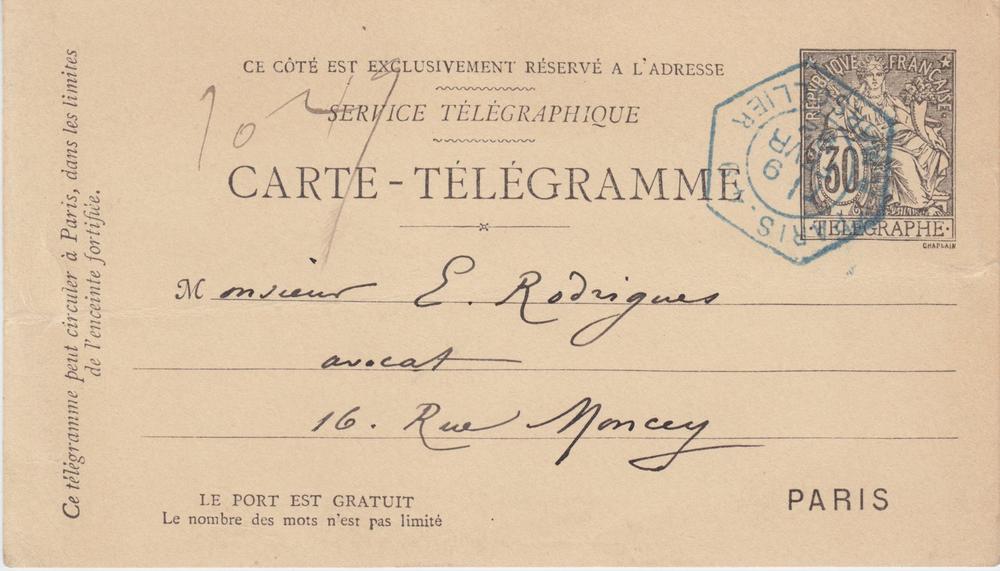 CE CÔTÉ EST EXCLUSIVEMENT RÉSERVÉ A L'ADRESSE
SERVICE TÉLÉGRAPHIQUE
CARTE-TÉLÉGRAMME
RÉPUBLIQUE FRANÇAISE
30
·TÉLÉGRAPHE·
CHAPLAIN
Monsieur E. Rodrigues
avocat
16. Rue Moncey
PARIS
LE PORT EST GRATUIT
Le nombre des mots n'est pas limité
Ce télégramme peut circuler à Paris, dans les limites
de l'enceinte fortifiée.